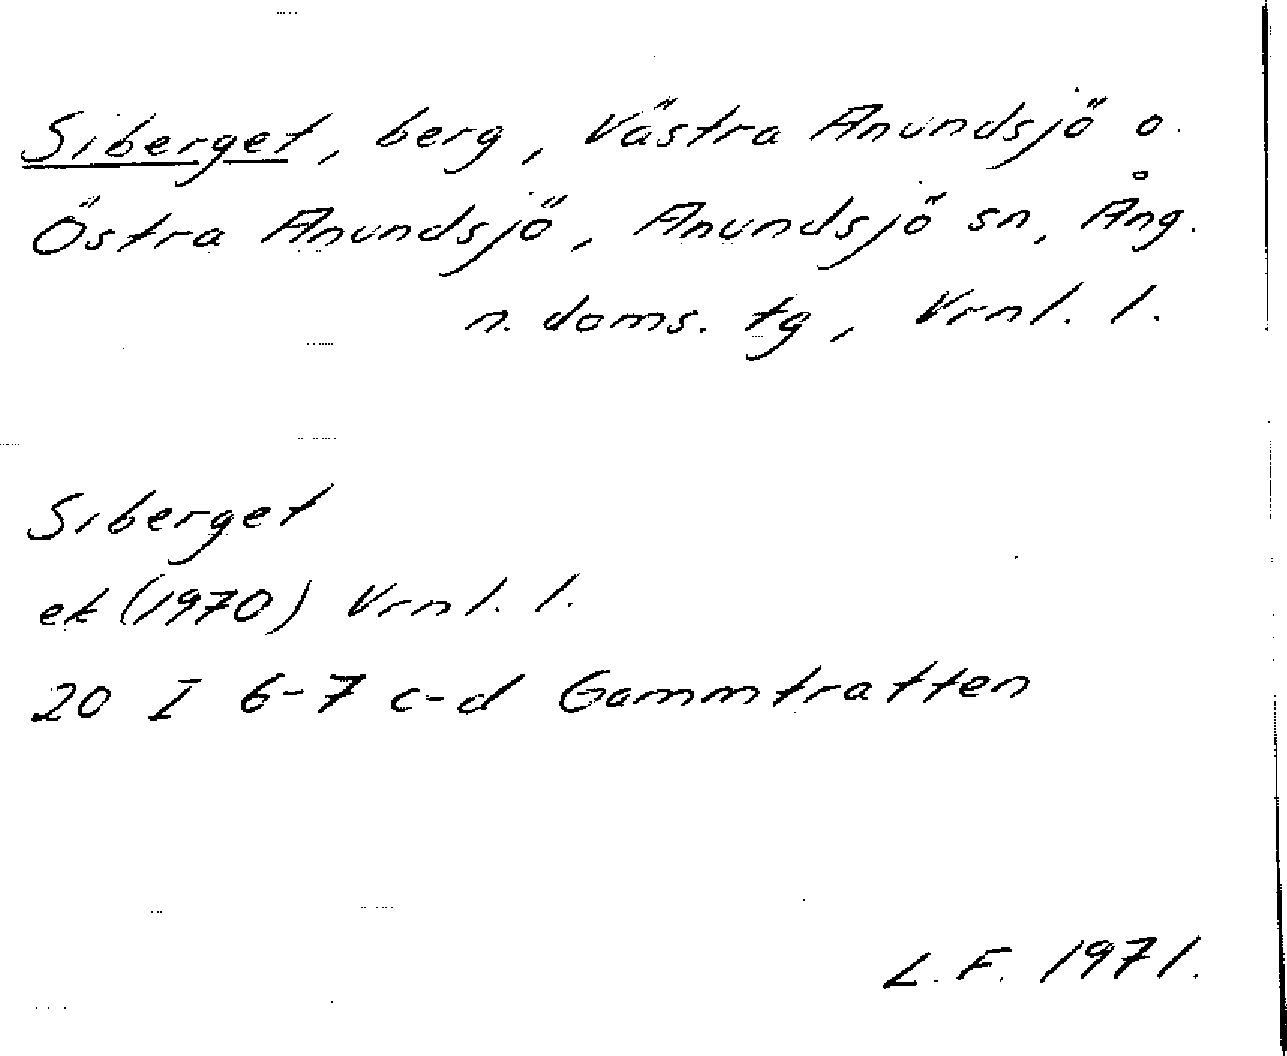 Siberget, berg, Västra Anundsjö o.
Östra Anundsjö, Anundsjö sn, Ång.
n. doms. tg, Vrnl. l.
Siberget
ek (1970) Vrnl. l.
20 I 6-7 c-d Gammtratten
L. F. 1971.